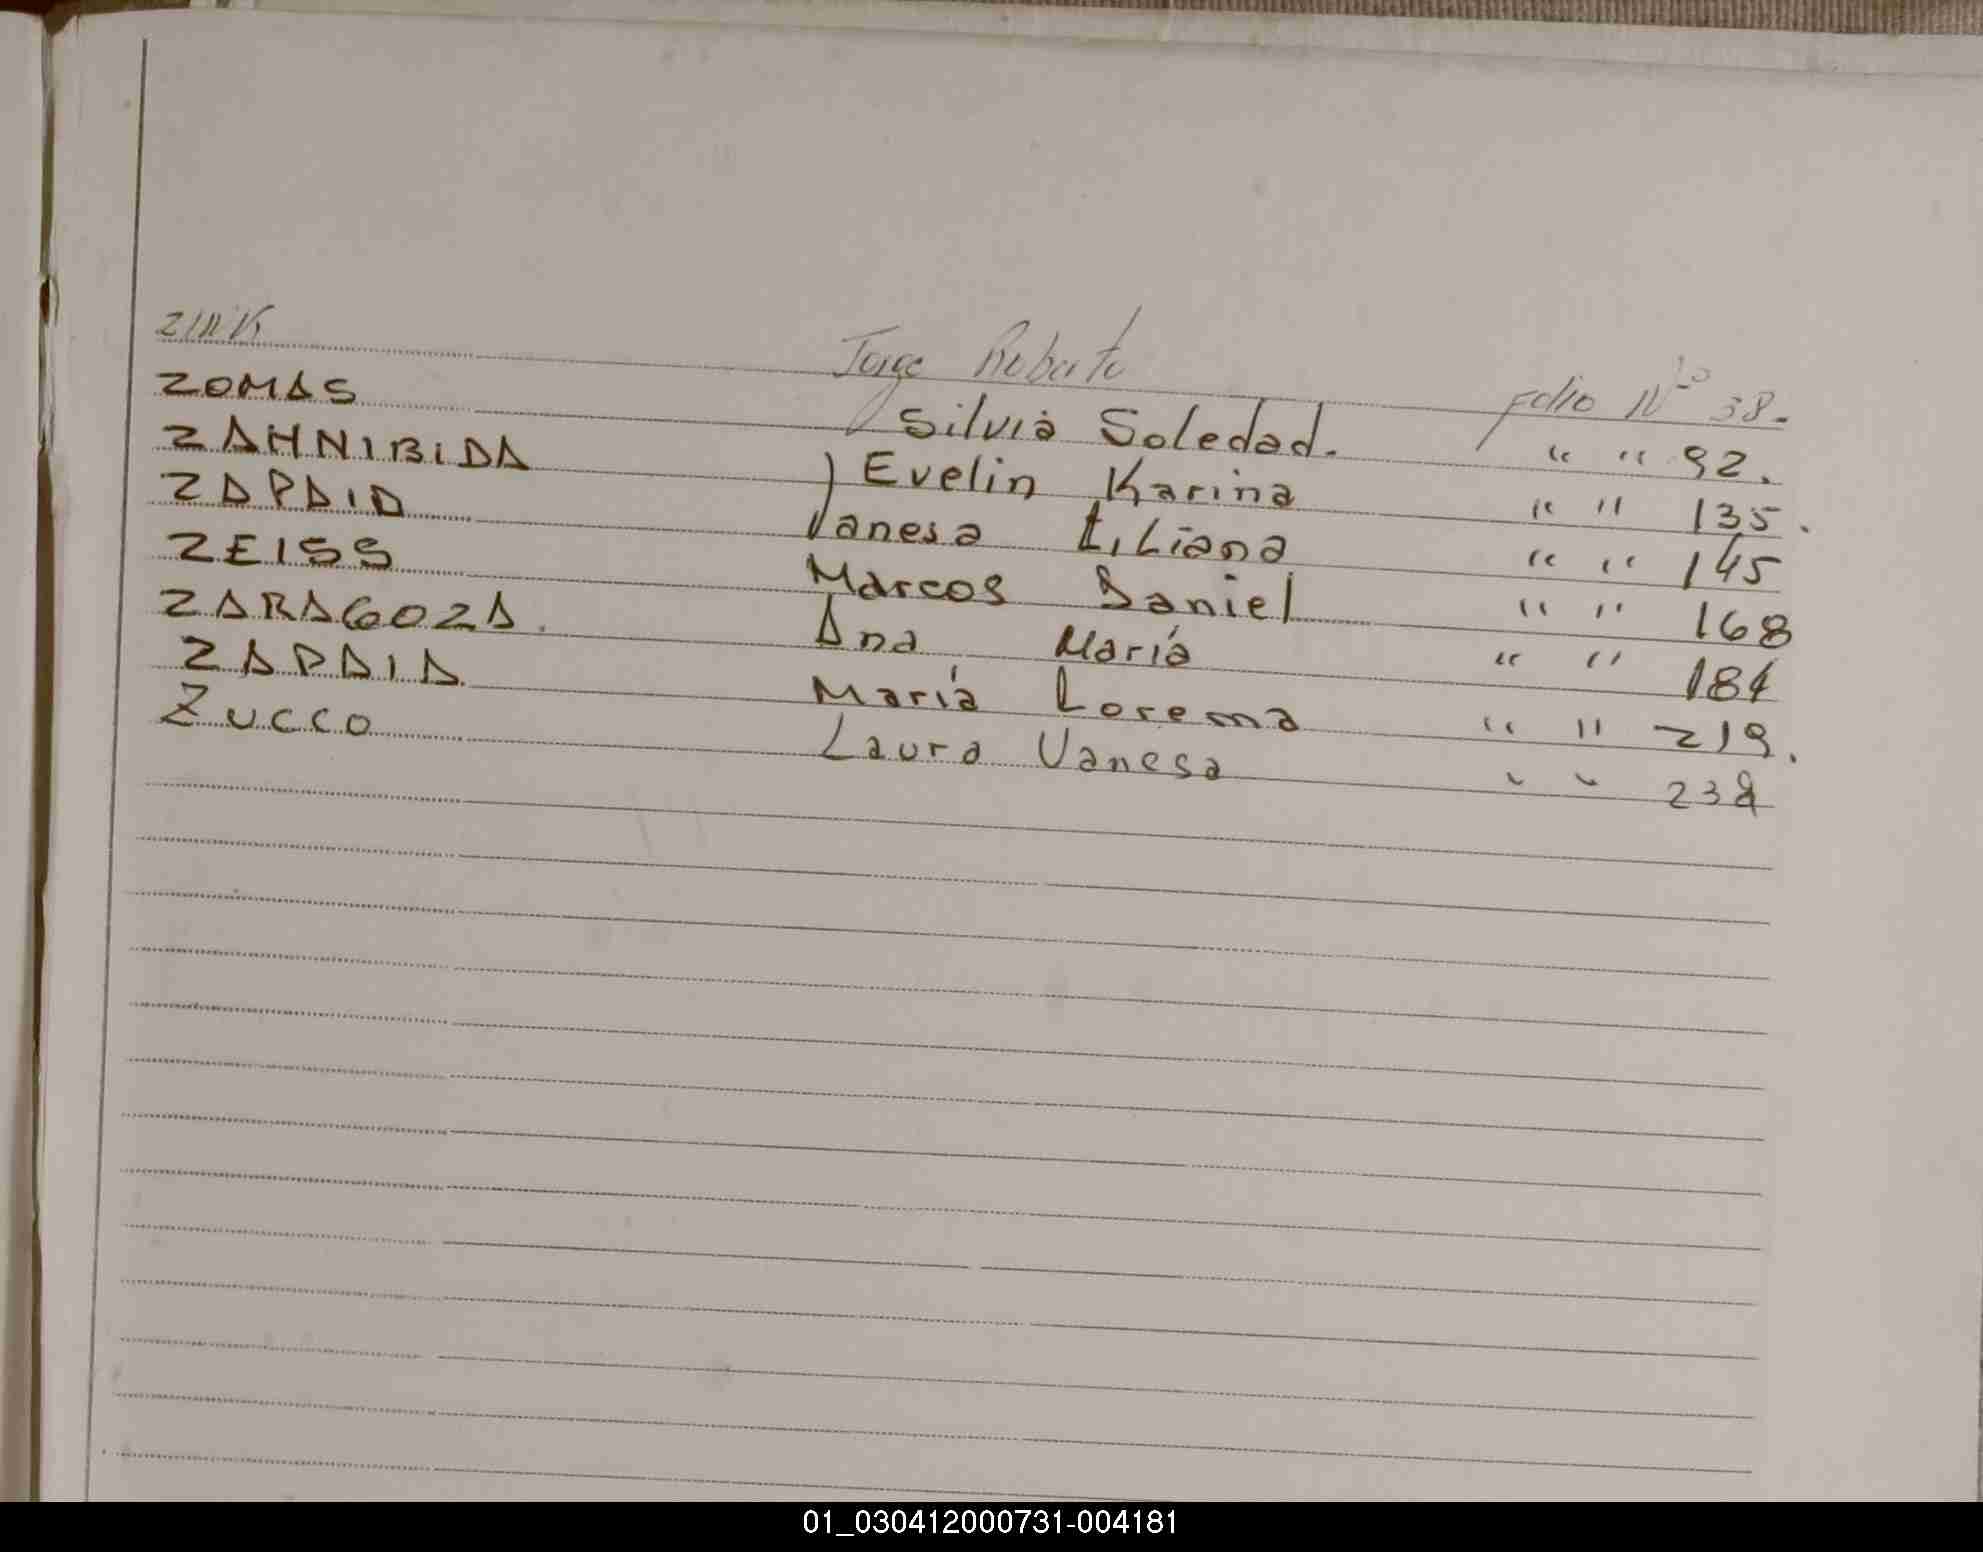 ZINK Jorge Roberto Folio Nº 38.
ZOMAS Silvia Soledad. " " 92.
ZAHNIBIDA Evelin Karina " " 135.
ZAPAIA Vanesa Liliana " " 145
ZEISS Marcos Daniel " " 168
ZARAGOZA. Ana María " " 184
ZAPAIA María Lorema " " 219.
Zucco Laura Vanesa " "
01_030412000731-004181